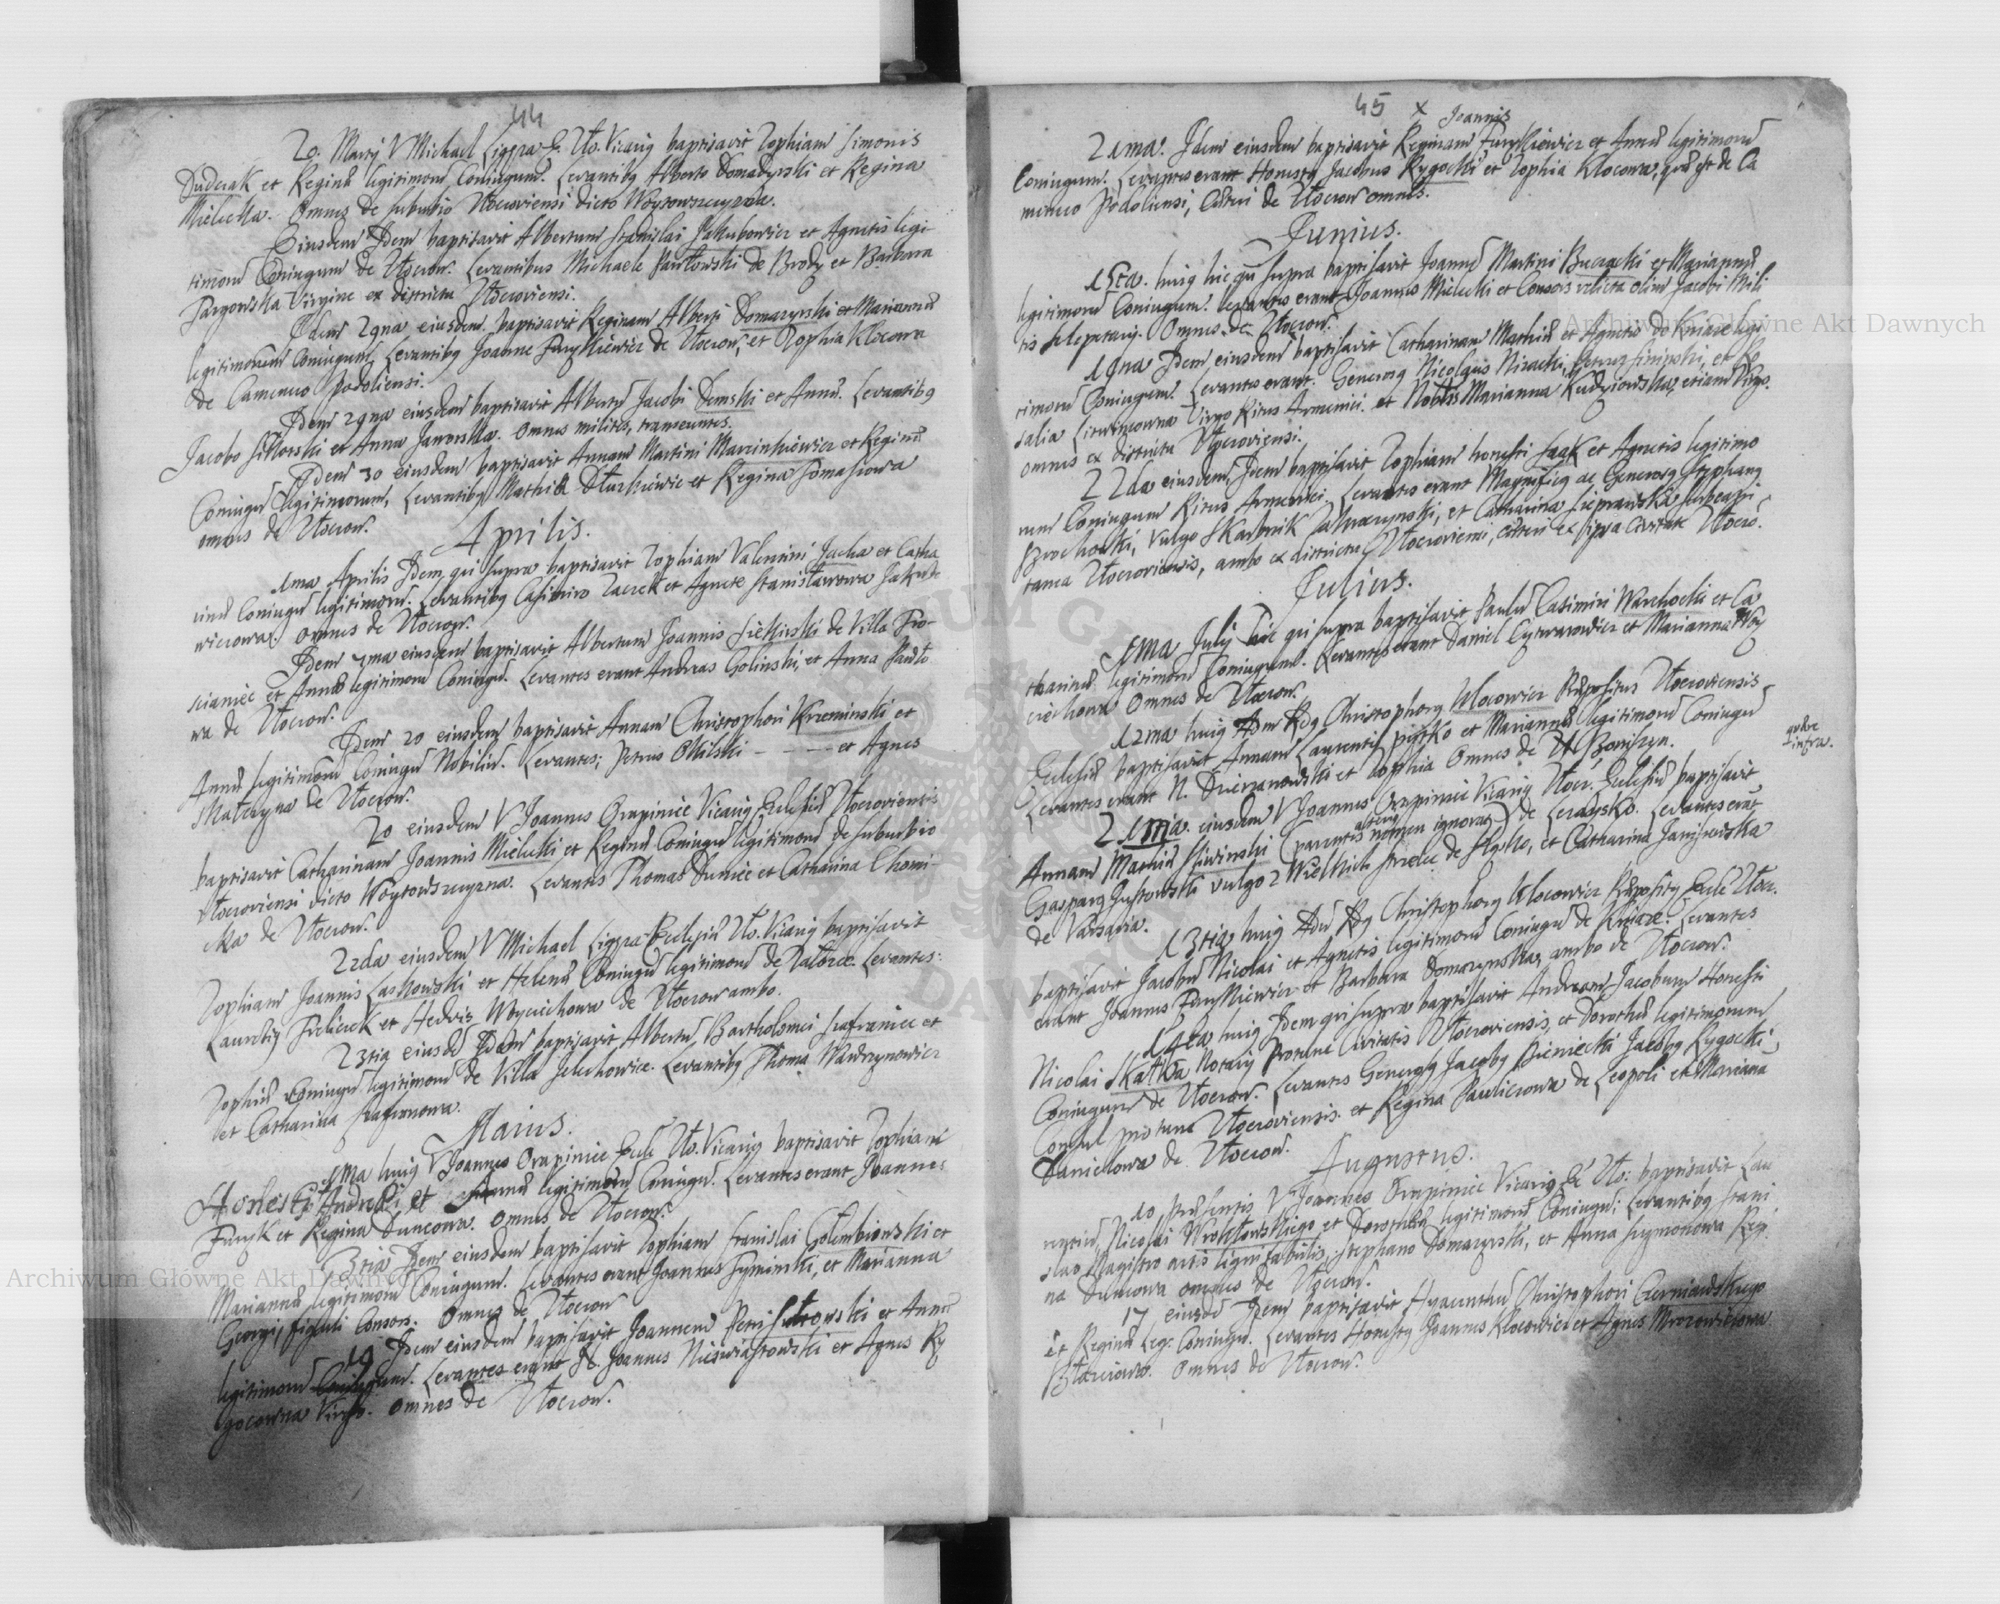 44
20. Martij V Michael Ligęza E. Zło. Vicarig baptisavit Zophiam Simonis
Dudczak et Reginæ legitimoru Coniugum. Levantibg Alberto Domazyrski et Regina
Mielicka. Omnes de suburbio Złocoviensi dicto Woytowszczyzna.
Eiusdem Idem baptisavit Albertum Stanislai Jakubowicz et Agnetis legi-
timoru Coniugum de Złoczow. Levantibus Michaele Pawłowski de Brody et Barbara
Virgine ex districtu Złoczoviensi.
Idem 29na eiusdem baptisavit Reginam Alberti Domazyrski et Mariannæ
legitimorum Coniugum, Levantibg Joanne Furykiewicz de Złoczow, et Zophia Klocowa
de Cameneco Podoliensi.
Idem 29na eiusdem baptisavit Albertu Jacobi Demski et Annæ. Levantibg
Jacobo Sikorski et Anna Jaworska. Omnes milites, transeuntes.
Idem 30 eiusdem baptisavit Annam Martini Marcinkiewicz et Reginæ
Coniugu legitimorum, Levantibg Mathia et Regina Tomaszowa
omnes de Złoczow.
Aprilis.
1ma Aprilis Idem qui supra baptisavit Zophiam Valentini Jacha et Catha
rinæ Coniugu legitimoru. Levantibg Casimiro et Agnete Stanisławowa Jakubo
wiczowa. omnes de Złoczow.
Idem eiusdem baptisavit Albertum Joannis de Villa Pio-
et Annæ legitimoru Coniugu. Levantes erant Andreas Golinski, et Anna Pawło
wa de Złoczow.
Idem 20 eiusdem baptisavit Annam Christophori Krzeminski et
Annæ legitimoru Coniugu Nobiliu. Levantes; Petrus Okilski - - - et Agnes
de Złoczow.
20 eiusdem V Joannes Orapiniec Vicarig Ecclesiæ Złoczoviensis
baptisavit Catharinam Joannis Mielicki et Reginæ Coniugu legitimoru de suburbio
Złoczoviensi dicto Woytowszczyzna. Levantes Thomas Duniec et Catharina Chomi-
cka de Złoczow.
22da eiusdem V Michael Ligęza Ecclesiæ Zło. Vicarig baptisavit
Zophiam Joannis Laskowski et Helenæ Coniugu legitimoru de Levantes:
Laurentig et Hedvig Woyciechowa de Złoczow ambo.
23tia eiusde Idem baptisavit Albertu Bartholomei Szafraniec et
Zophiæ Coniugu legitimoru de Villa Levantibg Thoma Wawrzynowicz
et Catharina Szafranowa.
Maius.
1ma huig V Joannes Orapiniec Eccle Zło. Vicarig baptisavit Zophiam
Honesti Andreæ et Annæ legitimoru Coniugu. Levantes erant Joannes
Furyk et Regina Duncowa. omnes de Złoczow.
3tia Idem eiusdem baptisavit Zophiam Stanislai Golembiowski et
Mariannæ legitimoru Coniugum. Levantes erant Joannes Syminski, et Marianna
Georgij figuli Consors. Omnes de Złoczow
19 Idem eiusdem baptisavit Joannem Petri et Annæ
legitimoru Coniugum. Levantes erant N. Joannes Nieswiastowski et Agnes Ry
gocowna Virgo. omnes de Złoczow.
45 x Joannis
21ma. Idem eiusdem baptisavit Reginam Furykiewicz et Annæ legitimoru
Coniugum. Levantes erant Honestg Jacobus Rygocki et Zophia Klocowa, quæ est de Ca
meneco Podoliensi, Cæteri de Złoczow omnes.
Junius.
15ta huig hic qui supra baptisavit Joanne Martini Buczacki et Mariannæ
legitimoru Coniugum. levantes erant Joannes Mielicki et Consors relicta olim Jacobi Mili
tis seleperarij. Omnes de Złoczow.
19na Idem eiusdem baptisavit Catharinam Mathiæ et Agnetis de Kniaze legi
timoru Coniugum. Levantes erant. Generosg Nicolaus et Ro
salia Virgo Ritus Armenici. et Nobilis Marianna etiam Virgo.
omnes ex districtu Złoczoviensi.
22da eiusdem, Idem baptisavit Zophiam honesti Isaak et Agnetis legitimo
rum Coniugum Ritus Armenici. Levantes erant Magnificg ac Generosg Stephang
Brochocki, vulgo Skarbnik et Catharina Sieprawska subcapi
tanea Złoczoviensis, ambo ex districtu Złoczoviensi, cæteri ex ipsa Civitate Złoczo.
Julius.
1ma July hic qui supra baptisavit Paulu Casimiri Warchocki et Ca
tharinæ legitimoru Coniugum. Levantes erant Daniel et Marianna Woy
ciechowa Omnes de Złoczow.
12ma huig Adm Rdg Christophorg Klocowicz Præpositus Złoczoviensis
Ecclesiæ baptisavit Annam Laurentij et Mariannæ legitimoru Coniugu
Levantes erant N. Dzierzanowski et Zophia Omnes de
quære
infra.
21ma. eiusdem V Joannes Orapiniec Vicarig Złocz. Ecclesiæ baptisavit
Annam Mathiæ Sliwinski (parentis alterig nomen ignorat) de Levantes erat
Gasparg vulgo z Wielkich de et Catharina
de Varsavia.
13tia huig Adm Rdg Christophorg Klocowicz Præpositg Eccle Złocz.
baptisavit Jacobu Nicolai et Agnetis legitimoru Coniugu de Kniaze. Levantes
erant Joannes Furykiewicz et Barbara Domazyrska, ambo de Złoczow.
14ta huig Idem qui supra baptisavit Andream Jacobum Honesti
Nicolai Skałka Notarij protunc Civitatis Złoczoviensis, et Dorotheæ legitimorum
Coniugum de Złoczow. Levantes Generosg Jacobg Bieniecki Jacobg Rygocki,
Consul protunc Złoczoviensis. et Regina Pawliczowa de Leopoli et Mariana
Danielowa de Złoczow.
Augustus.
10 præsentis V Joannes Orapiniec Vicarig E. Zło: baptisavit Lau
rentiu, Nicolai Wrobłowskiego et Dorotheæ legitimoru Coniugu; Levantibg Stani
slao Magistro artis lignifabilis, Stephano Domazyrski, et Anna Szymonowa Reg
na Duncowa omnes de Złoczow.
17 eiusde Idem baptisavit Hyacinthu Christophori Czerniawskiego
et Reginæ Leg: Coniugu. Levantes Honestg Joannes Klocowicz et Agnes Mrozowiczowa
omnes de Złoczow.
Archiwum Główne Akt Dawnych
Archiwum Główne Akt Dawnych